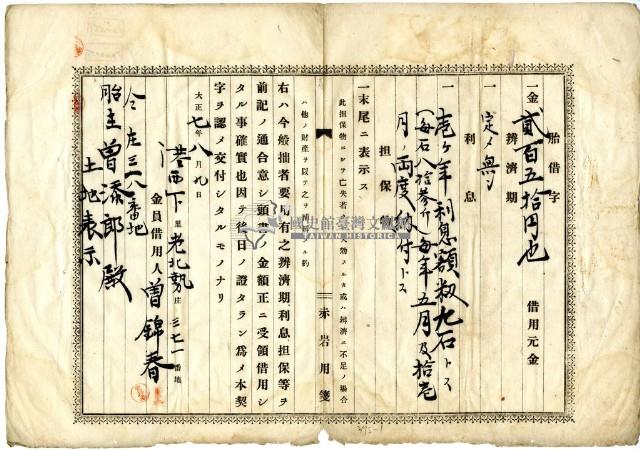 胎借字
一金貳百五拾円也 借用元金
辨濟期
一 定メ無シ
利息
一 壱ヶ年利息額籾九石トス
(每石八拾参斤)每年五月及拾壱
月ノ両度納付トス
担保
一末尾ニ表示ス
此担保物ニシテ亡失若
ハ他ノ財産ヲ以テ之ヲ
赤岩用箋
右ハ今般拙者要用有之辨濟期利息担保等ヲ
前記ノ通合意シ頭書ノ金額正ニ受領借用シ
タル事確實也因テ後日ノ證タラン爲メ本契
字ヲ認メ交付シタルモノナリ
大正七年八月九日
港西下里老北勢庄三七一番地
金員借用人曽錦春
仝庄三一八番地
胎主曽添郎殿
土地表示
國史館臺灣文獻館
TAIWAN HISTORICA